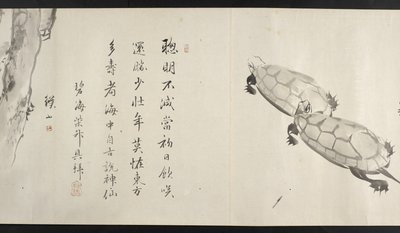 聰明不減當初日飲啖
還勝少壯年莫怪東方
多壽者海中自古說神仙
碧海
山